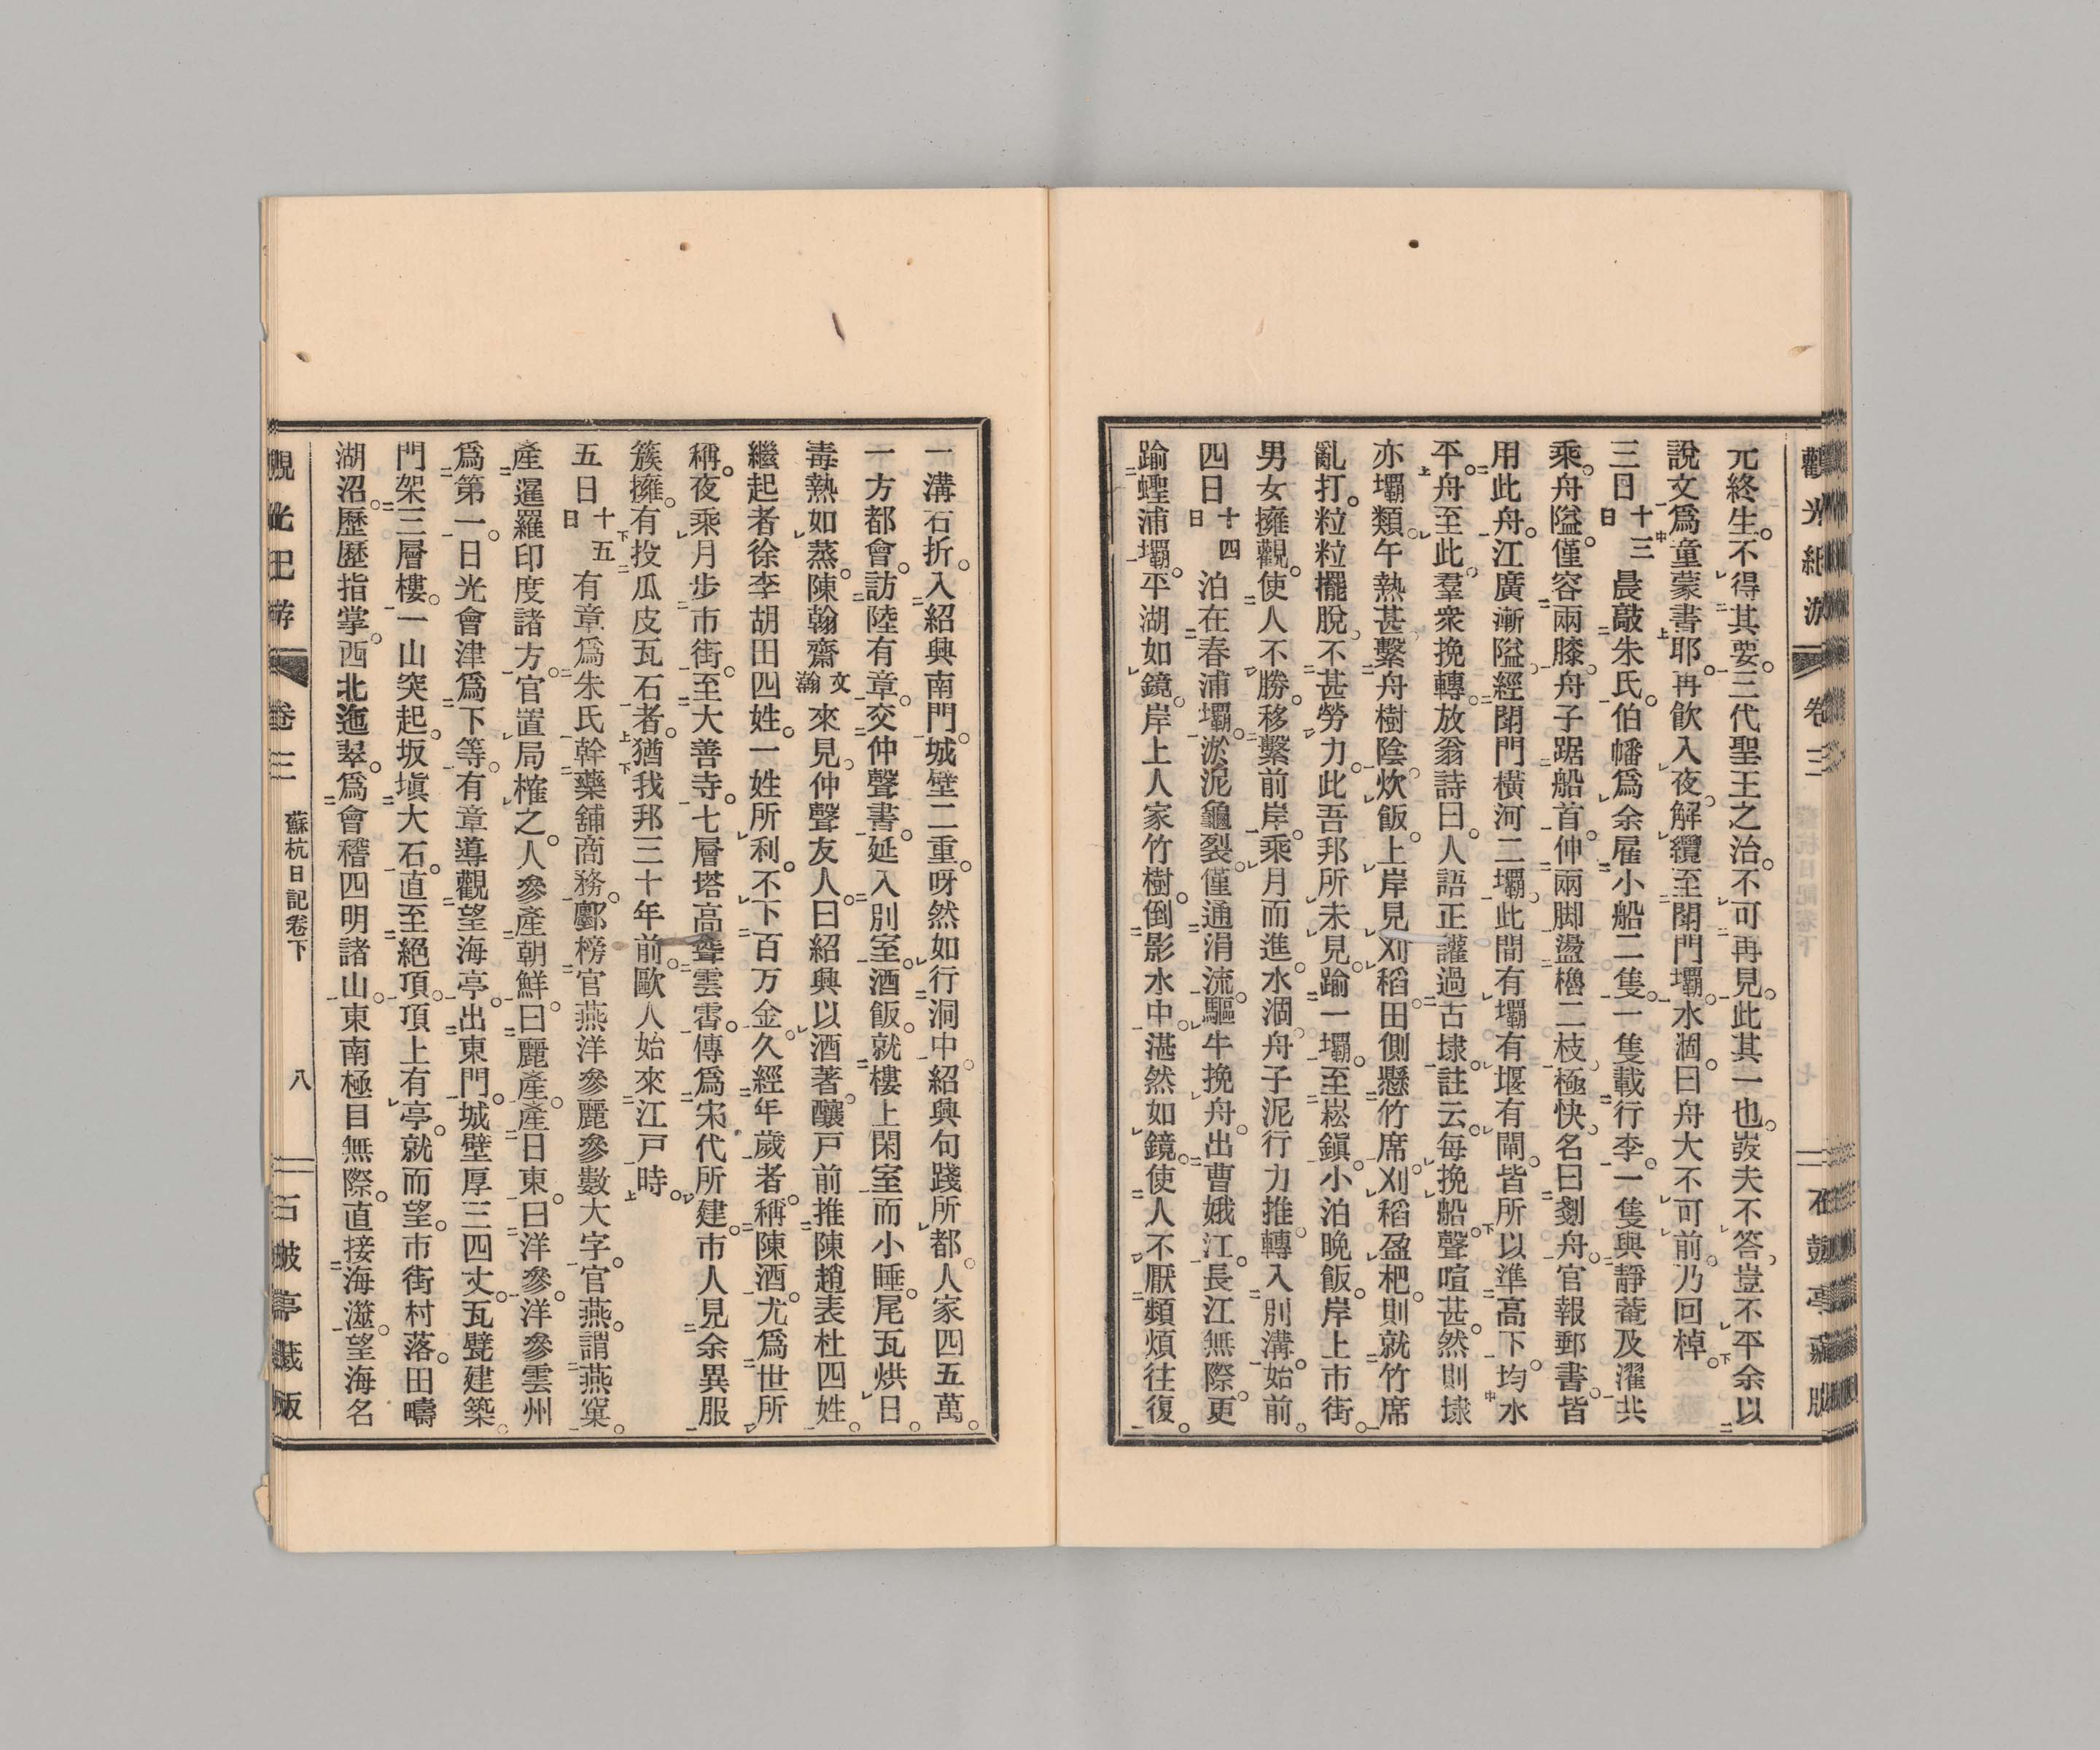 觀光紀游 卷三 石鼓亭藏版
元終生。不得其要。三代聖王之治。不可再見。此其一也。弢夫不答。豈不平余以
說文爲童蒙書耶。再飮入夜。解纜至閘門壩。水涸。曰舟大不可前。乃回棹。
三日十三日晨敲朱氏。伯幡爲余雇小船二隻。一隻載行李。一隻與靜菴及濯共
乘。舟隘。僅容兩膝。舟子踞船首。伸兩脚盪櫓二枝。極快。名曰剗舟。官報郵書。皆
用此舟。江廣漸隘。經閘門橫河二壩。此間有壩有堰有閘。皆所以準高下。均水
平。舟至此。羣衆挽轉。放翁詩曰。人語正讙過古埭。註云。每挽船。聲喧甚。然則埭
亦壩類。午熱甚。繫舟樹陰。炊飯。上岸見刈稻。田側懸竹席。刈稻盈杷。則就竹席
亂打。粒粒擺脫。不甚勞力。此吾邦所未見。踰一壩。至崧鎭。小泊晩飯。岸上市街。
男女擁觀。使人不勝。移繫前岸。乘月而進。水涸。舟子泥行力推。轉入別溝。始前。
四日十四日泊在春浦壩。淤泥龜裂。僅通涓流。驅牛挽舟。出曹娥江。長江無際。更
踰蟶浦壩。平湖如鏡。岸上人家竹樹。倒影水中。湛然如鏡。使人不厭頻煩往復。
一溝石折。入紹興南門。城壁二重。呀然如行洞中。紹興句踐所都。人家四五萬。
一方都會。訪陸有章。交仲聲書。延入別室。酒飯。就樓上閑室而小睡。尾瓦烘日。
毒熱如蒸。陳翰齋文瀚來見。仲聲友人。曰紹興以酒著。釀戸前推陳趙表杜四姓。
繼起者徐李胡田四姓。一姓所利。不下百万金。久經年歲者。稱陳酒。尤爲世所
稱。夜乘月步市街。至大善寺。七層塔高聳雲霄。傳爲宋代所建。市人見余異服
簇擁。有投瓜皮瓦石者。猶我邦三十年前。歐人始來江戸時。
五日十五日有章爲朱氏幹藥舖商務。鄽榜官燕洋參麗參數大字。官燕。謂燕窠。
產暹羅印度諸方。官置局榷之。人參產朝鮮。曰麗產。產日東。曰洋參。洋參雲州
爲第一。日光會津爲下等。有章導觀望海亭。出東門。城壁厚三四丈。瓦甓建築。
門架三層樓。一山突起。坂塡大石。直至絕頂。頂上有亭。就而望。市街村落。田疇
湖沼。歷歷指掌。西北迤翠。爲會稽四明諸山。東南極目無際。直接海澨。望海名
觀光紀游 卷三 蘇杭日記卷下 八 石鼓亭藏版